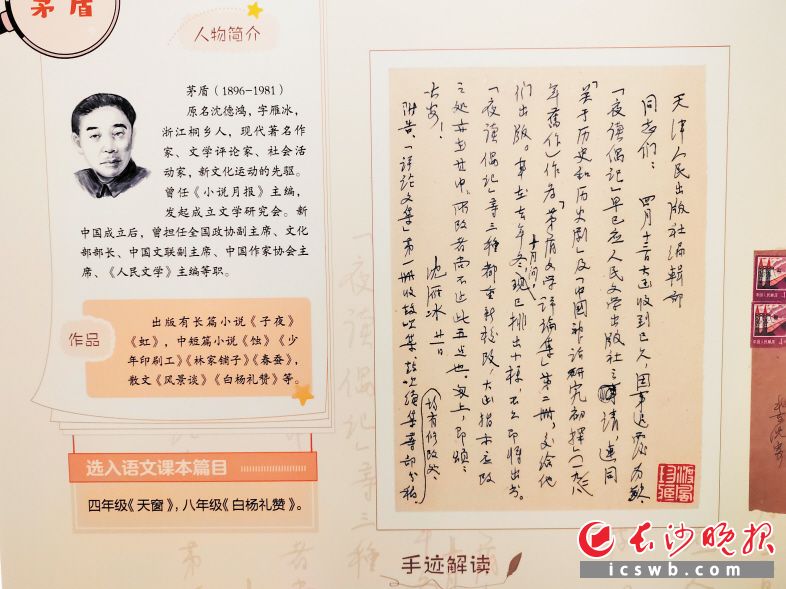 茅盾
人物简介
茅盾(1896-1981)
原名沈德鸿,字雁冰,
浙江桐乡人,现代著名作
家、文学评论家、社会活
动家,新文化运动的先驱。
曾任《小说月报》主编,
发起成立文学研究会。新
中国成立后,曾担任全国政协副主席、文化
部部长、中国文联副主席、中国作家协会主
席、《人民文学》主编等职。
作品
出版有长篇小说《子夜》
《虹》,中短篇小说《蚀》《少
年印刷工》《林家铺子》《春蚕》,
散文《风景谈》《白杨礼赞》等。
选入语文课本篇目
四年级《天窗》,八年级《白杨礼赞》。
天津人民出版社编辑部
同志们:四月十三日大函收到已久,因事迟覆为歉。
「夜读偶记」早已应人民文学出版社之请,连同
「关于历史和历史剧」及「中国神话研究初探」(一九二八
年旧作)作为「茅盾文学评论集」第二册,交给他
们出版。事在去年冬,现已排出小样,不久即将出书。
十月间
「夜读偶记」等三种都重新校改,大函指示应改
之处亦在其中,所改者尚不止此五点也。匆上,即颂
大安!
沈雁冰 廿一日
附告:「评论文集」第一册收鼓吹集、鼓吹续集等部分稿,
均有修改处
手迹解读
长沙晚报
icswb.com